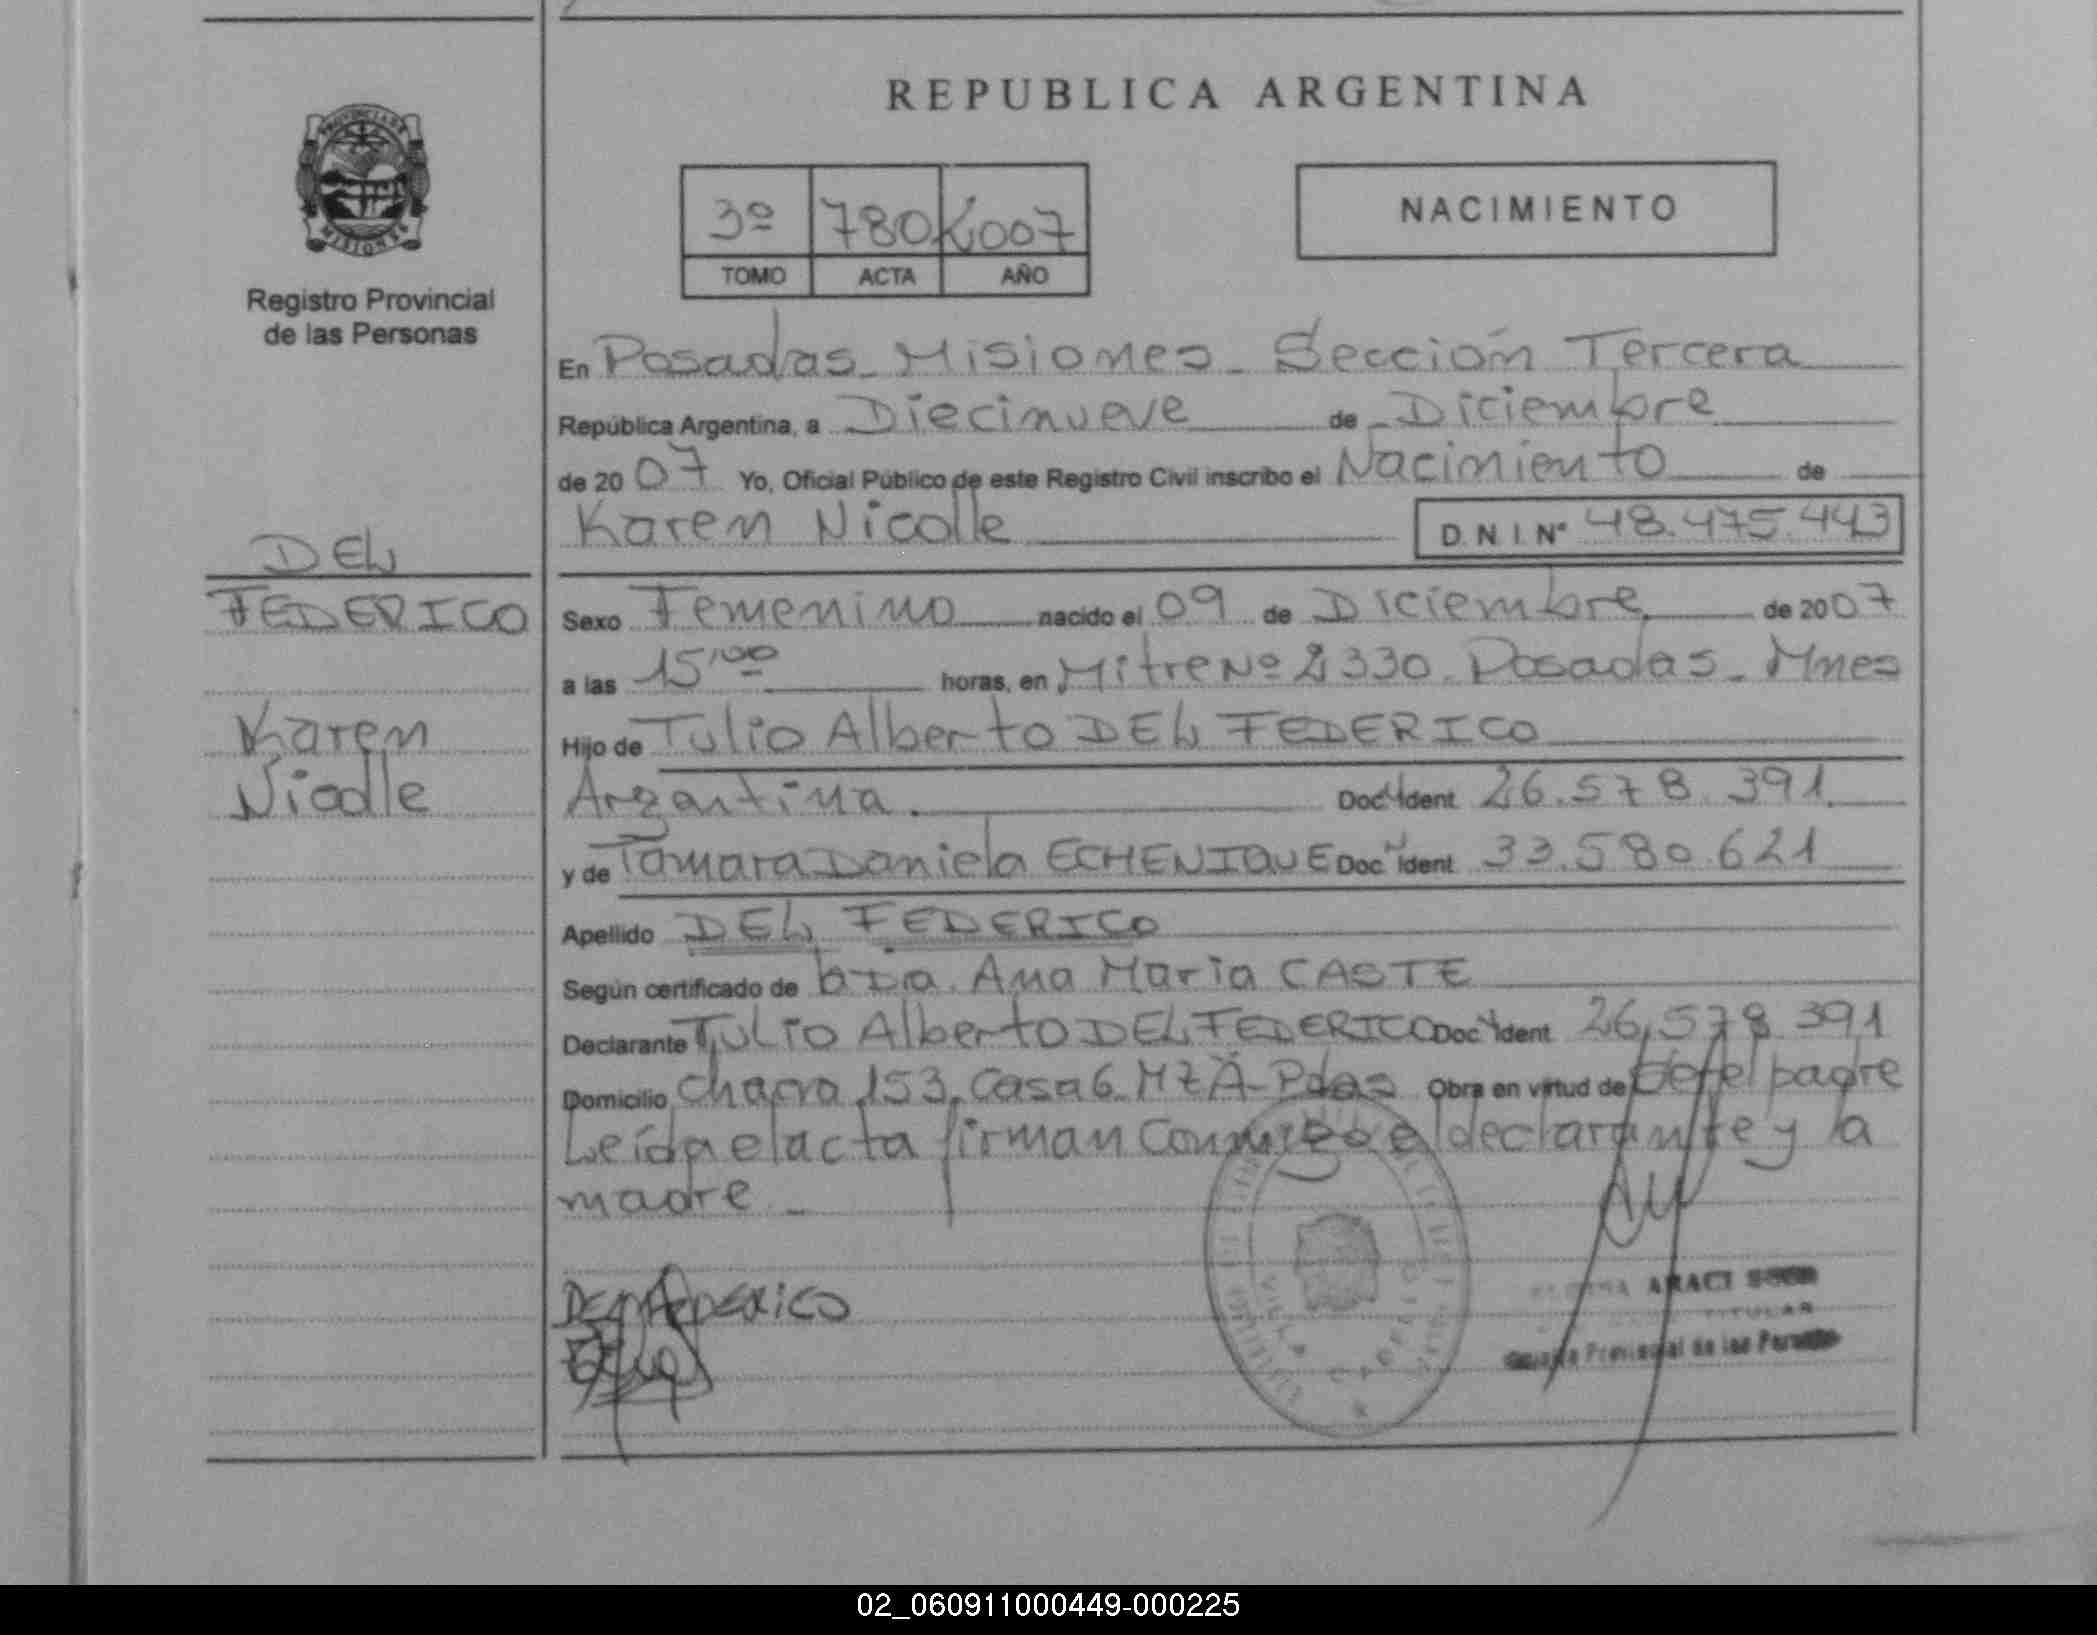 REPUBLICA ARGENTINA
PROVINCIA DE
MISIONES
Registro Provincial
de las Personas
3º 780 2007
TOMO ACTA AÑO
NACIMIENTO
En Posadas - Misiones - Sección Tercera
República Argentina, a Diecinueve de Diciembre
de 2007 Yo, Oficial Público de este Registro Civil inscribo el Nacimiento de
Karen Nicolle D.N.I. Nº 48.475.443
DEL
FEDERICO
Karen
Nicolle
Sexo Femenino nacido el 09 de Diciembre de 2007
a las 15,00 horas, en Mitre Nº 2330 - Posadas - Mnes
Hijo de Tulio Alberto DEL FEDERICO
Argentina. Doc. Ident 26.578.391
y de Tamara Daniela ECHENIQUE Doc. Ident 33.580.621
Apellido DEL FEDERICO
Según certificado de Dra. Ana Maria CASTE
Declarante Tulio Alberto DEL FEDERICO Doc. Ident 26.578.391
Domicilio Chacra 153. Casa 6. MZ A - Pdas Obra en virtud de el padre
Leída el acta firman Conmigo el declarante y la
madre. -
DEL FEDERICO
ARACI
TITULAR
Provincial de las
02_060911000449-000225